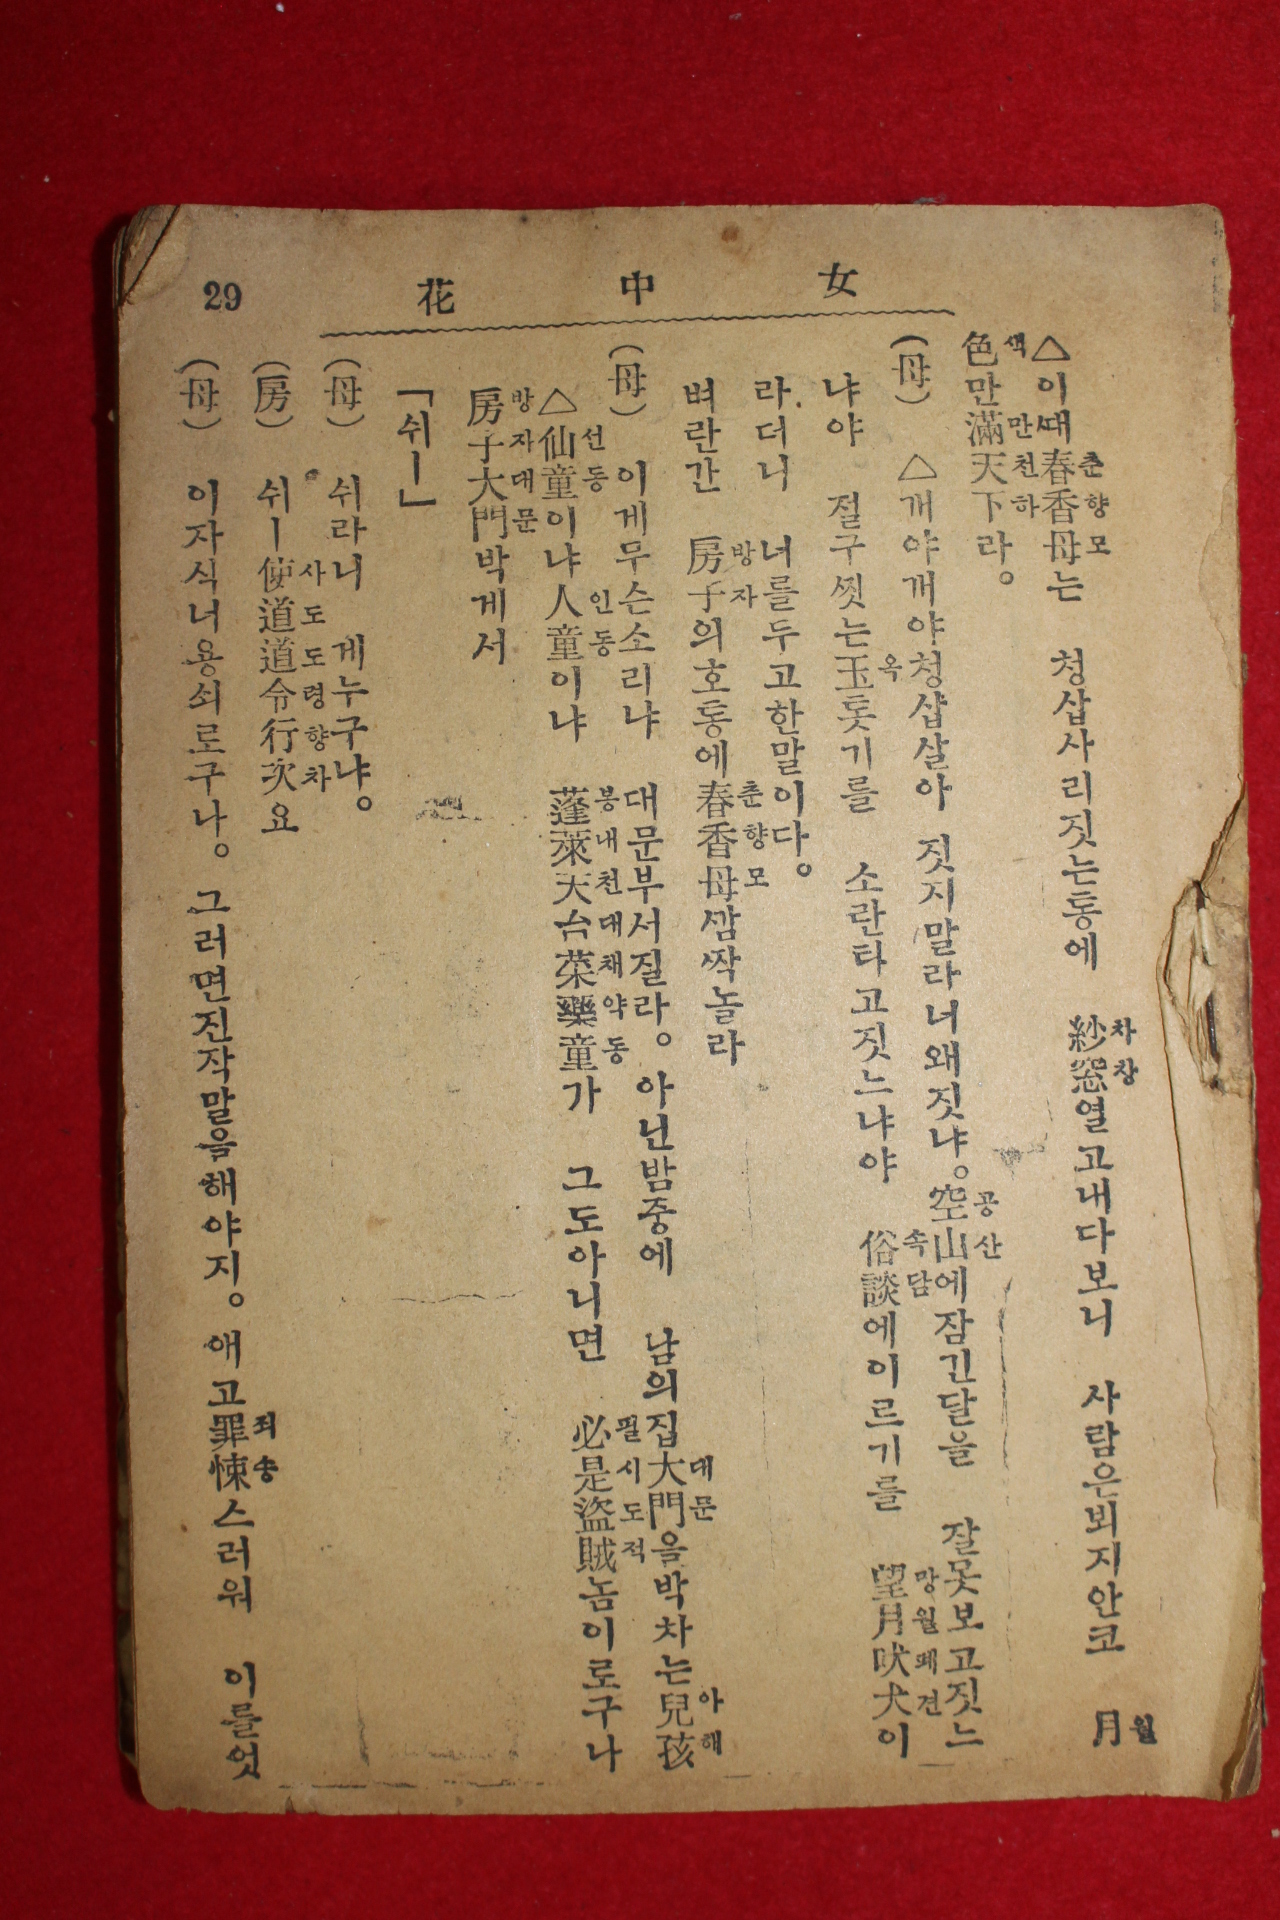 女中花
29
△이때春香母는 청삽사리짓는통에 紗窓열고내다보니 사람은뵈지안코 月
춘향모 차창 월
色만滿天下라。
색 만천하
(母) △개야개야청삽살아 짓지말라너왜짓냐。空山에잠긴달을 잘못보고짓느
공산
냐야 절구찟는玉톳기를 소란타고짓느냐야 俗談에이르기를 望月吠犬이
옥 속담 망월폐견
라더니 너를두고한말이다。
벼란간 房子의호통에春香母깜짝놀라
방자 춘향모
(母) 이게무슨소리냐 대문부서질라。 아닌밤중에 남의집大門을박차는兒孩
대문 아해
△仙童이냐人童이냐 蓬萊天台菜藥童가 그도아니면 必是盜賊놈이로구나
선동 인동 봉내천대채약동 필시도적
房子大門박게서
방자대문
「쉬ー」
(母) 쉬라니 게누구냐。
(房) 쉬ー使道道令行次요
사도도령향차
(母) 이자식너용쇠로구나。 그러면진작말을해야지。 애고罪悚스러워 이를엇
죄송